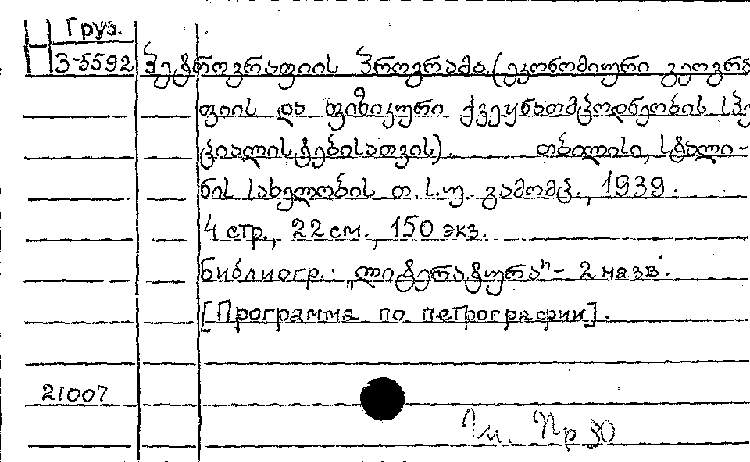 Груз.
3-5592 პეტროგრაფიის პროგრამა (ეკონომიური გეოგრა
ფიის და ფიზიკური ქვეყნათმცოდნეობის სპე
ციალისტებისათვის) თბილისი, სტალი-
ნის სახელობის თ.ს.უ. გამომც., 1939.
4 стр., 22 см., 150 экз.
библиогр.: „ლიტერატურა" - 2 назв.
[Программа по петрографии].
21007
Пр 80